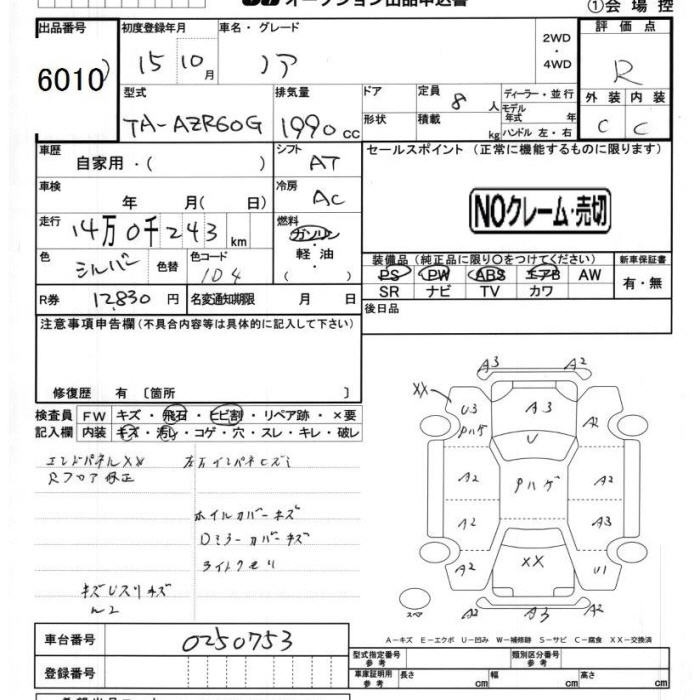 オークション出品申込書
①会場控
出品番号 6010
初度登録年月 15 10月
車名・グレード ノア
2WD・4WD
評価点 R
外装 C 内装 C
型式 TA-AZR60G
排気量 1990 cc
ドア
形状
定員 8 人
積載 kg
ディーラー・並行
モデル年式 年式
ハンドル 左・右
車歴 自家用・( )
シフト AT
セールスポイント (正常に機能するものに限ります)
車検 年 月( 日)
冷房 AC
NOクレーム・売切
走行 14万0千243 km
燃料 ガソリン・軽油・( )
色 シルバー 色替 色コード 1D4
装備品 (純正品に限り○をつけてください)
新車保証書 有・無
PS PW ABS エアB AW
SR ナビ TV カワ
R券 12,830 円 名変通知期限 月 日
後日品
注意事項申告欄 (不具合内容等は具体的に記入して下さい)
修復歴 有 〔箇所 〕
検査員記入欄
FW キズ・飛石・ヒビ割・リペア跡・×要
内装 キズ・汚レ・コゲ・穴・スレ・キレ・破レ
エンドパネルXX
Rフロア修正
ホイルカバーキズ
Dミラーカバーキズ
ライトクモリ
A3 A2
XX
U3 Pハゲ
A3
A2
U
A2 Pハゲ A2
A2 A3
A2 XX U1
A2 A3 A2
スペア
A-キズ E-エクボ U-凹み W-補修跡 S-サビ C-腐食 XX-交換済
車台番号 0250753
登録番号
型式指定番号 参考
類別区分番号 参考
車庫証明用 参考 長さ cm 幅 cm 高さ cm